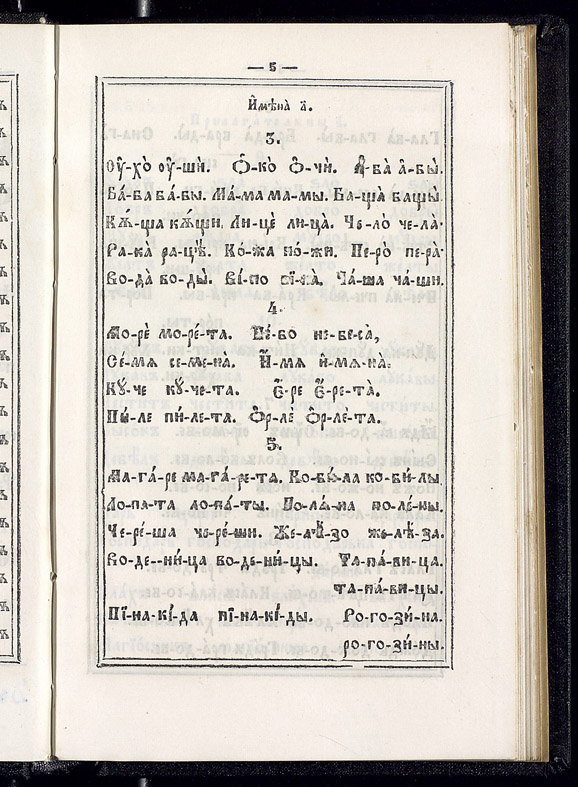 — 5 —
И҆мѣна̀ а҃.
3.
Оу҆́-хо оу҆́-ши. Ѻ҆́-ко ѻ҆́-чи. Ꙗ҆́-ва ꙗ҆́-вы.
Ба́-ба ба́-бы. Ма́-ма ма́-мы. Ба-ща̀ бащы̀.
Кѫ́-ща кѫ́щи. Ли-цѐ ли-ца. Че-ло̀ че-ла̀.
Ра-ка̀ ра-цѣ̀. Ко́-жа ко́-жи. Пе-ро̀ пе-ра̀.
Во-да̀ во-ды̀. Ви́-но ви́-на, Ча́-ша ча́-ши.
4.
Мо-рѐ мо-ре́-та. Не́-бо не-бе-са̀,
Се́-мѧ се-ме-на. И҆́-мѧ и-мѧ-на̀.
Ку́-че ку́-че-та. Е҆́-ре Е҆́-ре-та̀.
Пи́-ле пи́-ле-та. Ѻ҆р-лѐ Ѻ҆р-лѐ-та.
5.
Ма-га́-ре ма-га́-ре-та. Ко-бы́-ла ко-би-лы
Ло-па-та ло-па́-ты. По-ла́-на по-ле́-ны.
Че-ре́-ша че-ре́-ши. Же-лѣ́-зо же-лѣ́-за.
Во-де-ни́-ца во-де-ни́-цы. Та-па́-ви-ца.
та-па́-ви-цы.
Пі-на-кі́-да пі-на-кі́-ды. Ро-го-зи́-на.
ро-го-зи́-ны.